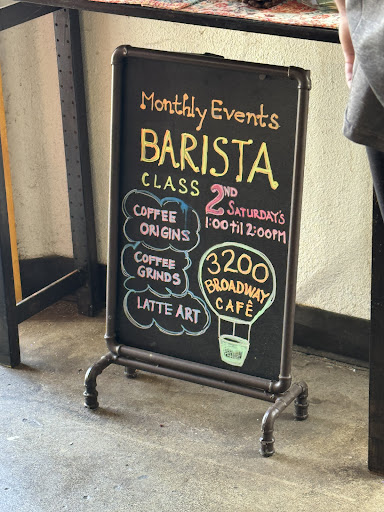 Monthly Events
BARISTA
CLASS
2ND
SATURDAY'S
1:00 til 2:00PM
COFFEE
ORIGINS
COFFEE
GRINDS
LATTE ART
3200
BROADWAY
CAFÊ